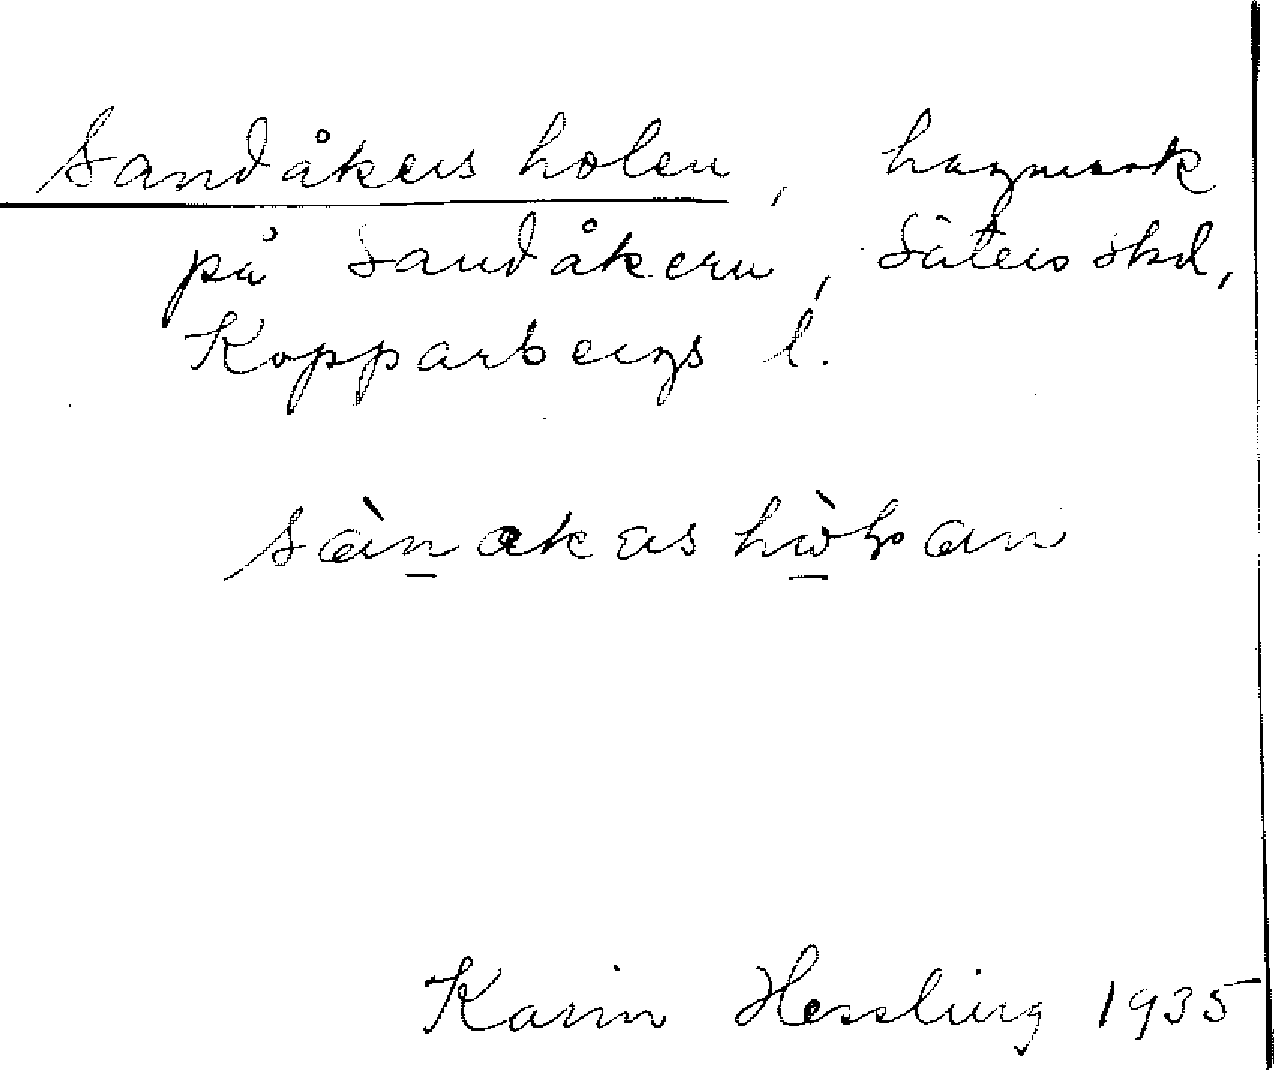 Sandåkers holen, hagmark
på Sandåkern, Säters skd,
Kopparbergs l.
Karin Hessling 1935